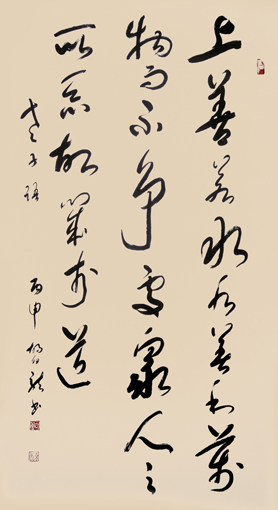 上善若水水善利萬
物而不争處衆人之
所惡故幾於道
老子語
丙申書